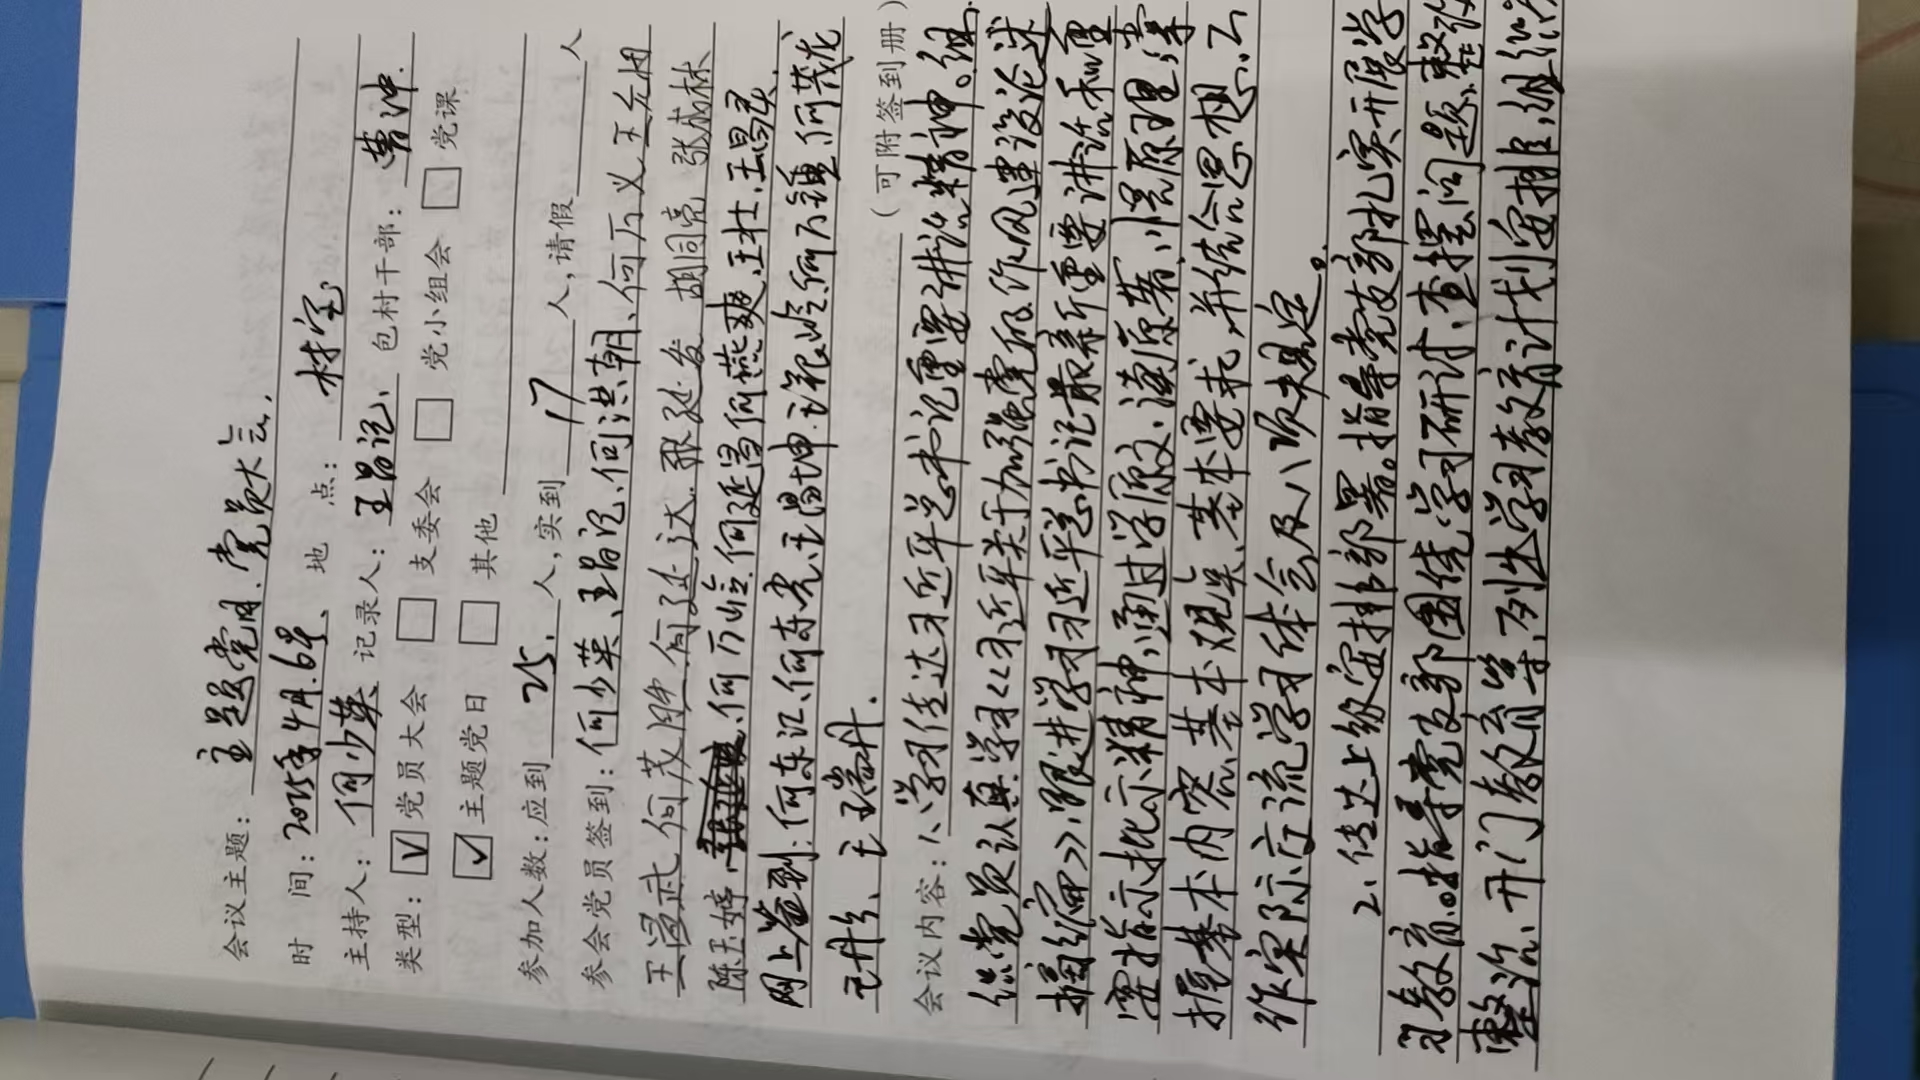 会议主题：主题党日、党员大会.
时 间：2025年4月.6号、 地 点： 村室
主持人：何少英 记录人：王昌记、 包村干部：曹冲.
类型：☑党员大会 □支委会 □党小组会 □党课
☑主题党日 □其他
参加人数：应到 25. 人，实到 17 人，请假 人
参会党员签到：何少英、王昌记、何洪朝、何万义
王 武 何茂胜 何延达. 张延发 胡同亮 张成林
陈玉婷、何万 、何延昌 何燕爽、王壮、王昌灵、
网上签到：何东记、何东亮、王昌坤 何万锺、何茂龙
王丹丹、王瑞丹.
（可附签到册）
会议内容：1、学习传达习近平总书记重要讲话精神。组
织党员认真学习《习近平关于加强党的作风建设论述
摘编》，跟进学习习近平总书记最新重要讲话和重
要指示批示精神，通过学原文、读原著、悟原理，掌
握基本内容、基本观点、基本要求，并结合思想、工
作实际交流学习体会及八项规定。
2、传达上级安排部署。指导党支部扎实开展学
习教育。指导党支部围绕学习研讨、查摆问题、整改
整治、开门教育等，列出学习教育计划安排，组织